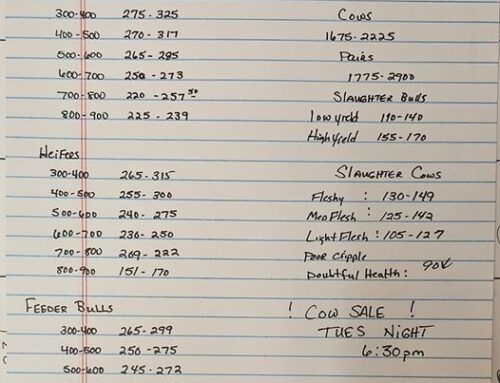 300-400 275-325
400-500 270-317
500-600 265-295
600-700 250-273
700-800 220-257 50
800-900 225-239
Heifers
300-400 265-315
400-500 255-300
500-600 240-275
600-700 230-250
700-800 209-222
800-900 151-170
FEEDER BULLS
300-400 265-299
400-500 250-275
500-600 245-272
Cows
1675-2225
Pairs
1775-2900
SLAUGHTER Bulls
low yield 110-140
High yield 155-170
SLAUGHTER Cows
Fleshy : 130-149
Med Flesh : 125-142
Light Flesh : 105-127
Poor cripple
Doubtful Health :
! COW SALE !
TUES NIGHT
6:30pm